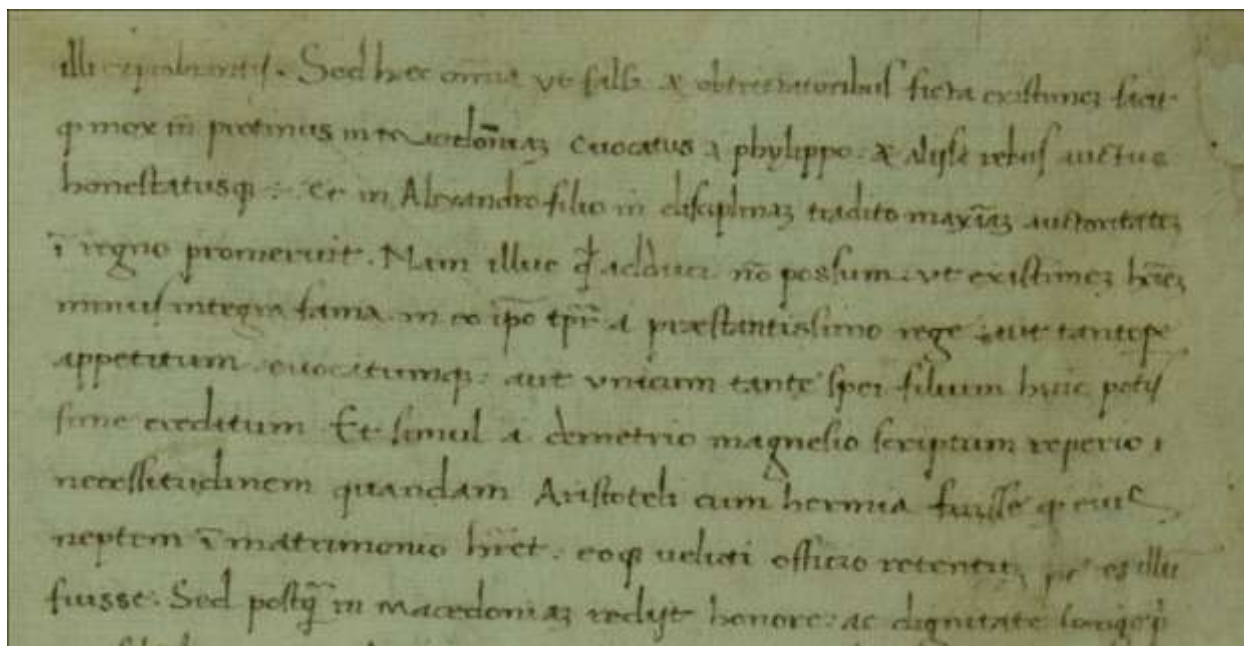 illi exprobrantis. Sed hec omnia ut falsa & obtrectatoribus ficta existimez facit
q mox in protinus in macedoniaz evocatus a phylippo. & alijsq rebus auctus
honestatusq: Et in Alexandro filio in disciplinaz tradito maxīaz auctoritatez
ī regno promeruit. Nam illuc qđ adduci nō possum. ut existimez hōīez
minus integra fama in eo ipō tpr̄e a præstantissimo rege aut tantope
appetitum. evocatumq: aut unicum tante spei filium huic potis
sime creditum Et simul a demetrio magnesio scriptum reperio
necessitudinem quandam Aristoteli cum hermia fuisse q eius
neptem ī matrimonio hr̄et. eoq veluti officio retentuz illū
fuisse. Sed postq̄ in macedoniaz redijt honore: ac dignitate